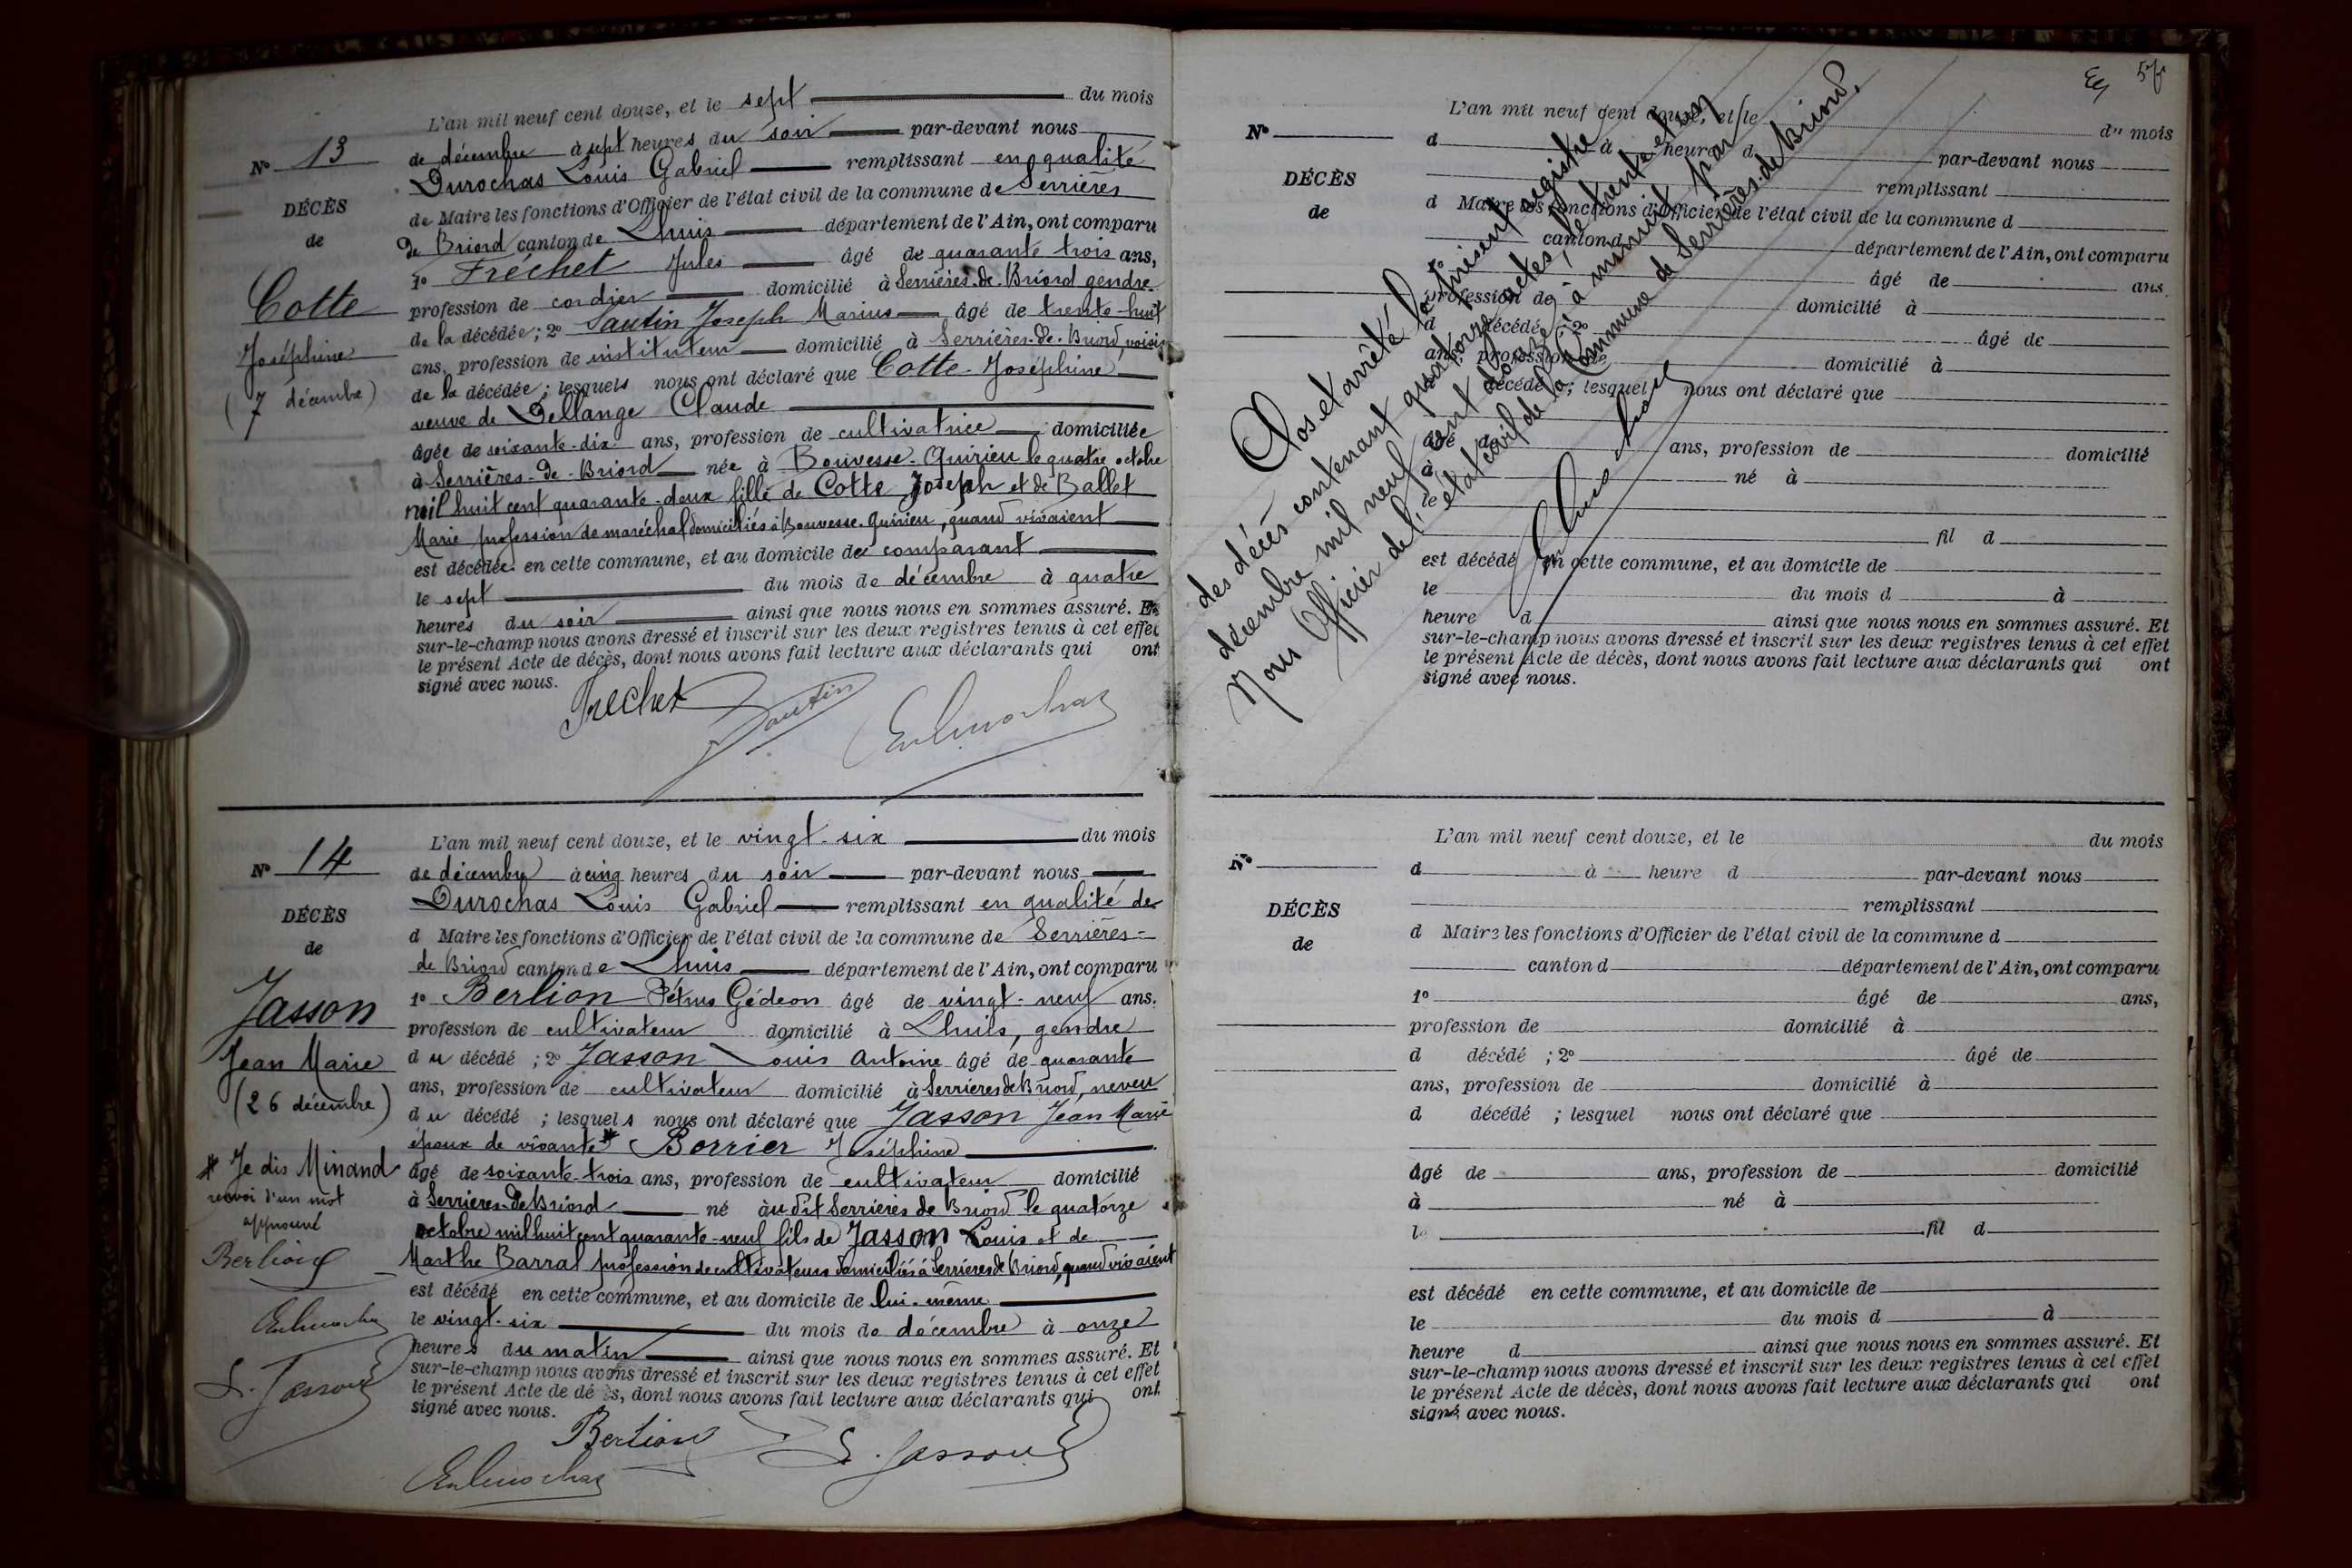 L'an mil neuf cent douze, et le sept du mois
N° 13
de décembre à sept heures du soir par-devant nous
Durochas Louis Gabriel remplissant en qualité
DÉCÈS
de Maire les fonctions d'Officier de l'état civil de la commune de Serrières
de
de Briord canton de Lhuis département de l'Ain, ont comparu
1° Fréchet Jules âgé de quarante trois ans,
Cotte
profession de cordier domicilié à Serrières-de-Briord gendre
de la décédée; 2° Sautin Joseph Marius âgé de trente-huit
Joséphine
ans, profession de instituteur domicilié à Serrières-de-Briord, voisin
(7 décembre)
de la décédée; lesquels nous ont déclaré que Cotte Joséphine
veuve de Dellange Claude
âgée de soixante-dix ans, profession de cultivatrice domiciliée
à Serrières-de-Briord née à Bouvesse-Quirieu le quatre octobre
mil huit cent quarante-deux fille de Cotte Joseph et de Ballet
Marie profession de maréchal domiciliés à Bouvesse-Quirieu, quand vivaient
est décédée en cette commune, et au domicile du comparant
le sept du mois de décembre à quatre
heures du soir ainsi que nous nous en sommes assuré. Et
sur-le-champ nous avons dressé et inscrit sur les deux registres tenus à cet effet
le présent Acte de décès, dont nous avons fait lecture aux déclarants qui ont
signé avec nous.
Frechet Sautin
L'an mil neuf cent douze, et le vingt-six du mois
N° 14
de décembre à cinq heures du soir par-devant nous
Durochas Louis Gabriel remplissant en qualité de
DÉCÈS
d Maire les fonctions d'Officier de l'état civil de la commune de Serrières-
de
de Briord canton de Lhuis département de l'Ain, ont comparu
Jasson
1° Berlion Pétrus Gédeon âgé de vingt-neuf ans.
profession de cultivateur domicilié à Lhuis, gendre
Jean Marie
du décédé; 2° Jasson Louis Antoine âgé de quarante
ans, profession de cultivateur domicilié à Serrières de Briord, neveu
(26 décembre)
du décédé; lesquels nous ont déclaré que Jasson Jean Marie
époux de vivante * Borrier Joséphine
* Je dis Minand
renvoi d'un mot
approuvé
âgé de soixante-trois ans, profession de cultivateur domicilié
à Serrières-de-Briord né audit Serrières de Briord le quatorze
octobre mil huit cent quarante-neuf fils de Jasson Louis et de
Berlion
Marthe Barral profession de cultivateurs domiciliés à Serrières de Briord, quand vivaient
est décédé en cette commune, et au domicile de lui-même
le vingt-six du mois de décembre à onze
heures du matin ainsi que nous nous en sommes assuré. Et
L. Jasson
sur-le-champ nous avons dressé et inscrit sur les deux registres tenus à cet effet
le présent Acte de dé s, dont nous avons fait lecture aux déclarants qui ont
signé avec nous.
Berlion L. Jasson
57
L'an mil neuf cent douze, et le du mois
N°
d à heure d par-devant nous
remplissant
DÉCÈS
d Maire les fonctions d'Officier de l'état civil de la commune d
de
canton d département de l'Ain, ont comparu
1° âgé de ans
profession de domicilié à
d décédé; 2° âgé de
ans, profession de domicilié à
d décédé; lesquel nous ont déclaré que
âgé de ans, profession de domicilié
à né à
le fil d
est décédé en cette commune, et au domicile de
le du mois d à
heure d ainsi que nous nous en sommes assuré. Et
sur-le-champ nous avons dressé et inscrit sur les deux registres tenus à cet effet
le présent Acte de décès, dont nous avons fait lecture aux déclarants qui ont
signé avec nous.
Clos et arrêté le présent registre
des décès contenant quatorze actes, le trente et un
décembre mil neuf cent douze à minuit par
Nous Officier de l'état civil de la Commune de Serrières-de-Briord.
L'an mil neuf cent douze, et le du mois
N°
d à heure d par-devant nous
remplissant
DÉCÈS
d Maire les fonctions d'Officier de l'état civil de la commune d
de
canton d département de l'Ain, ont comparu
1° âgé de ans,
profession de domicilié à
d décédé ; 2° âgé de
ans, profession de domicilié à
d décédé ; lesquel nous ont déclaré que
âgé de ans, profession de domicilié
à né à
le fil d
est décédé en cette commune, et au domicile de
le du mois d à
heure d ainsi que nous nous en sommes assuré. Et
sur-le-champ nous avons dressé et inscrit sur les deux registres tenus à cet effet
le présent Acte de décès, dont nous avons fait lecture aux déclarants qui ont
signé avec nous.